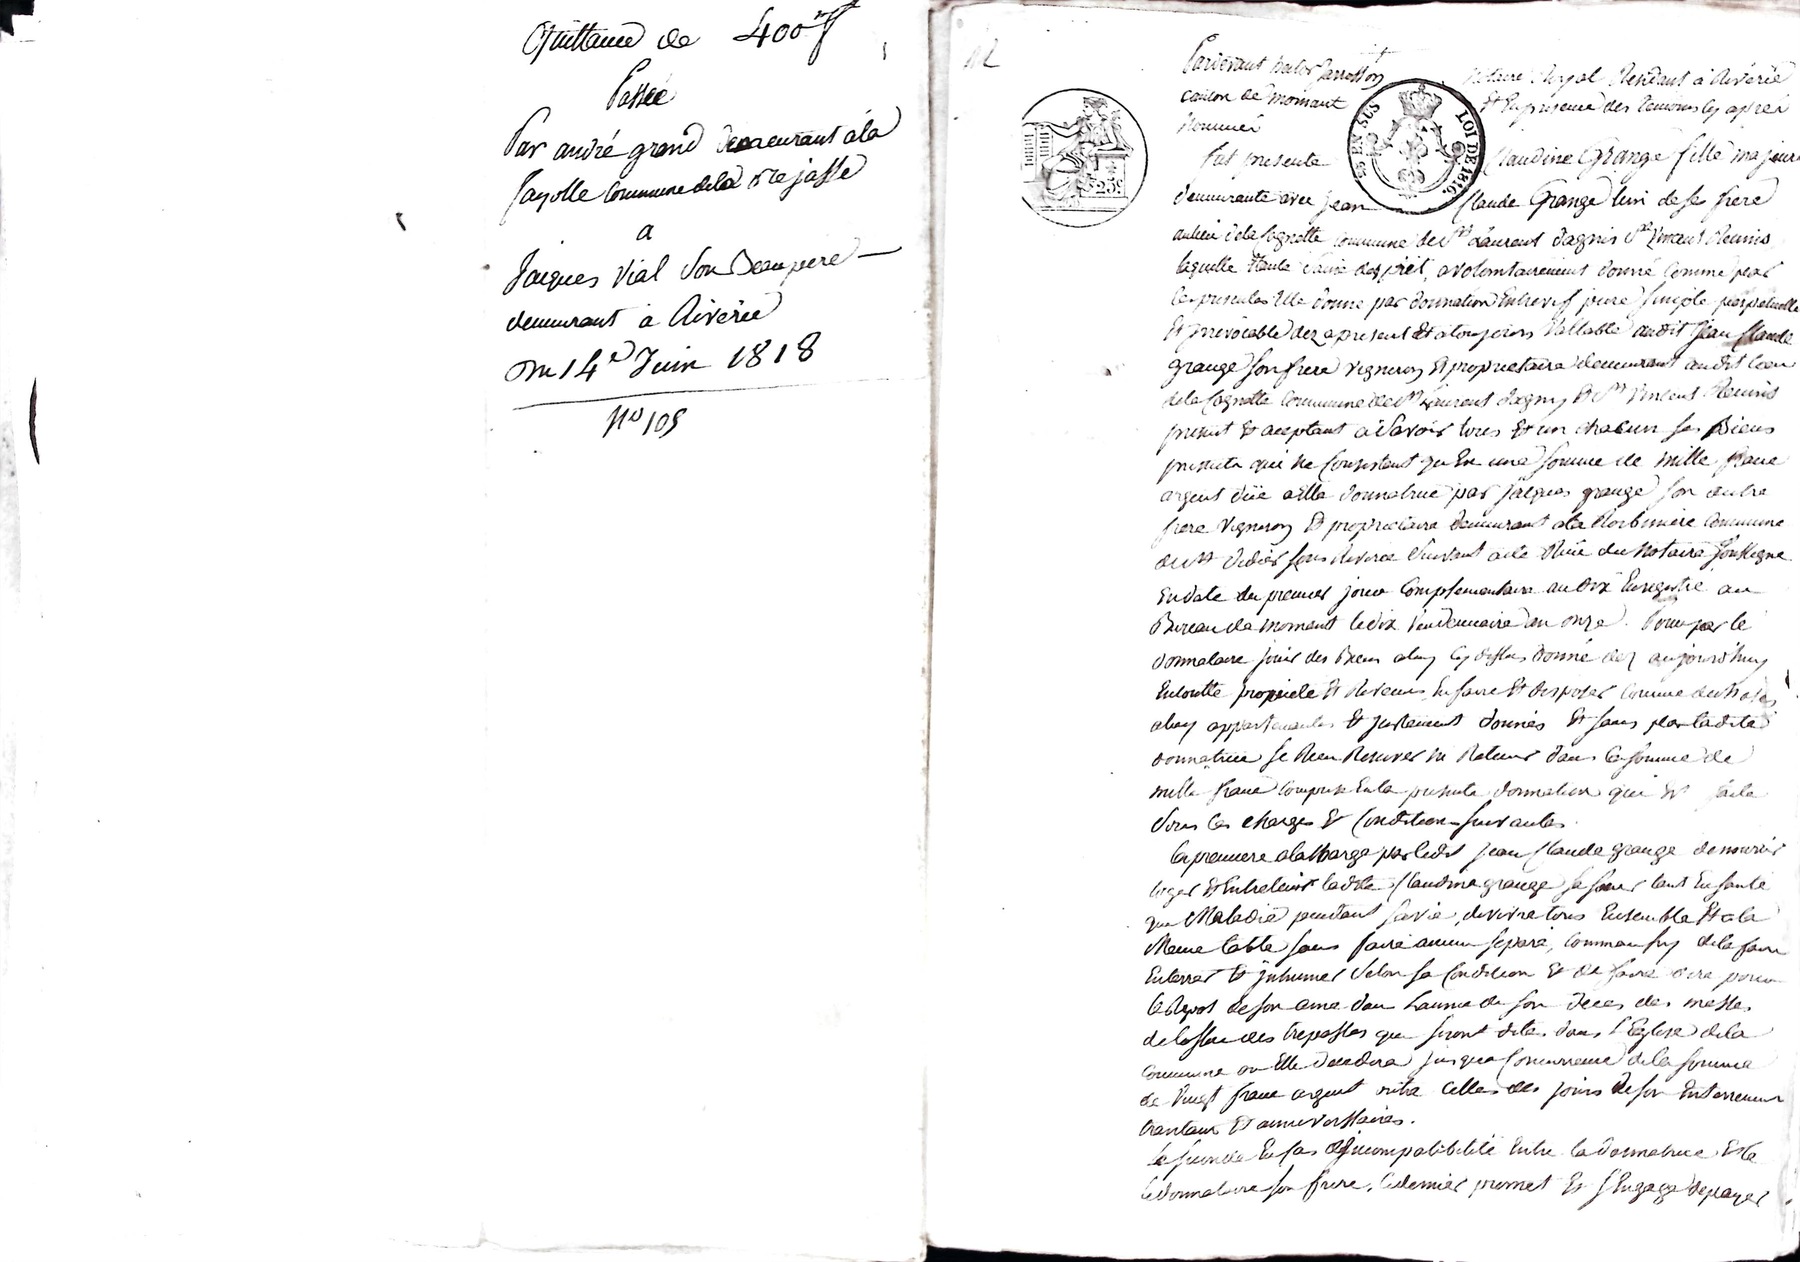 Quittance de 400 f
Passée
Par andré grand demeurant à la
fayolle Commune de la jasse
a
Jacques Vial Son Beaupère
demeurant à Riverie
Du 14e Juin 1818
No 105
12
Pardevant notaire Royal Residant à Riverie
canton de mornant Et En presence des temoins cy après
Nommés
25 EN SUS
LOI DE 1816.
25c
fut presente Claudine Grange fille majeure
demeurante avec Jean Claude Grange lun de ses frere
au lieu de la Cognette Commune de St Laurent dagnis St Vincent Reunis
laquelle a volontairement donné Comme par
les presentes Elle donne par donnation Entrevif pure Simple perpetuelle
Et irrevocable dez apresent Et a toujours Vallable audit Jean Claude
grange Son frere vigneron Et proprietaire demeurant audit lieu
de la Cognette Commune de St Laurent dagny Et St Vincent Reunis
present Et aceptant a Savoir tous Et un chacun Ses Biens
presents qui ne Consistent qu En une Somme de mille franc
argent düe a Elle donnatrice par Jacques grange Son autre
frere vigneron Et proprietaire demeurant a la Commune
de St Didier Sous Riverie Suivant acte Reçu du Notaire Soussigne
En date du premier jour Complementaire an dix Enregistré au
Bureau de mornant le dix Vendemiaire an onze. Pour par le
donnataire jouir des Biens aluy cy dessus donné dez aujourdhuy
En toutte propriete Et Revenus En faire Et disposer Comme de choses
aluy appartenantes Et justement donnés Et Sans par ladite
donnatrice Se Rien Reserver ni Retenir dans la Somme de
mille franc comprise En la presente donnation qui Est faite
Sous les charges Et Conditions Suivantes.
la premiere a la Charge par ledit Jean Claude grange de nourrir
loger Et Entretenir ladite Claudine grange Sa Sœur tant En Santé
que Maladie pendant Sa vie, de vivre tous Ensemble Et a la
Meme table Sans faire aucun Separé, comme aussy de la faire
Enterrer Et inhumer Selon Sa Condition Et de faire dire pour
le Repos de Son ame dans Lannee de Son Deces des messes
de loffice des trepassés qui Seront dites dans l'Eglise de la
Commune ou Elle decedera jusqua Concurrence de la Somme
de Vingt franc argent outre Celles des jours de Son Enterrement
trantain Et anniversaires.
la Seconde En Cas dincompatibilité Entre la Donnatrice Et le
le donnataire Son frere, Ce dernier promet Et S'Engage de payer